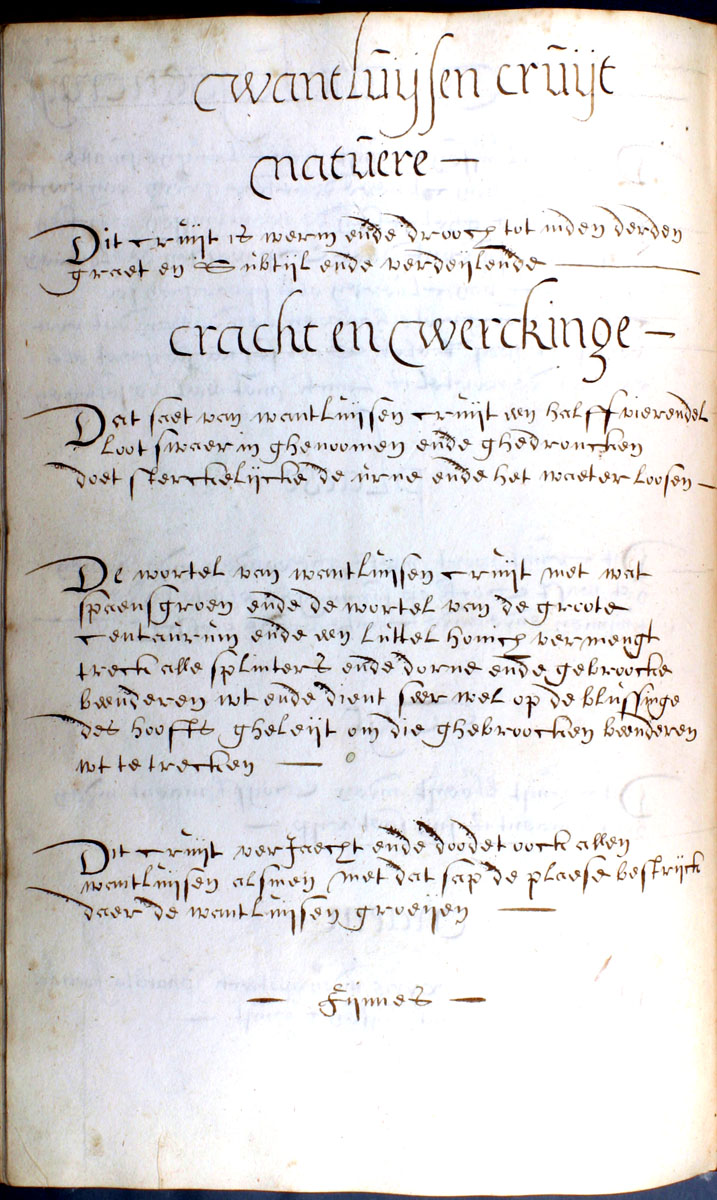 wantluijsen cruijt
natuere
Dit cruijt is werm ende drooch tot inden derden
graet en subtijl ende verdeijlende
cracht en werckinge
Dat saet van wantluijsen cruijt een halff vierendel
loot swaer in ghenoomen ende ghedroncken
doet sterckelijcke de urne ende het waeter loosen
De wortel van wantluijsen cruijt met wat
spaensgroen ende de wortel van de groote
Centaurum ende een luttel honich vermengt
treck alle splinters ende dorne ende gebroocke
beenderen wt ende dient seer wel op de blussinge
des hoofts gheleijt om die ghebroocken beenderen
wt te trecken
Dit cruijt verjaecht ende doodet oock allen
wantluijsen alsmen met dat sap de plaese bestrijck
daer de wantluijsen groeijen
Fijnnes